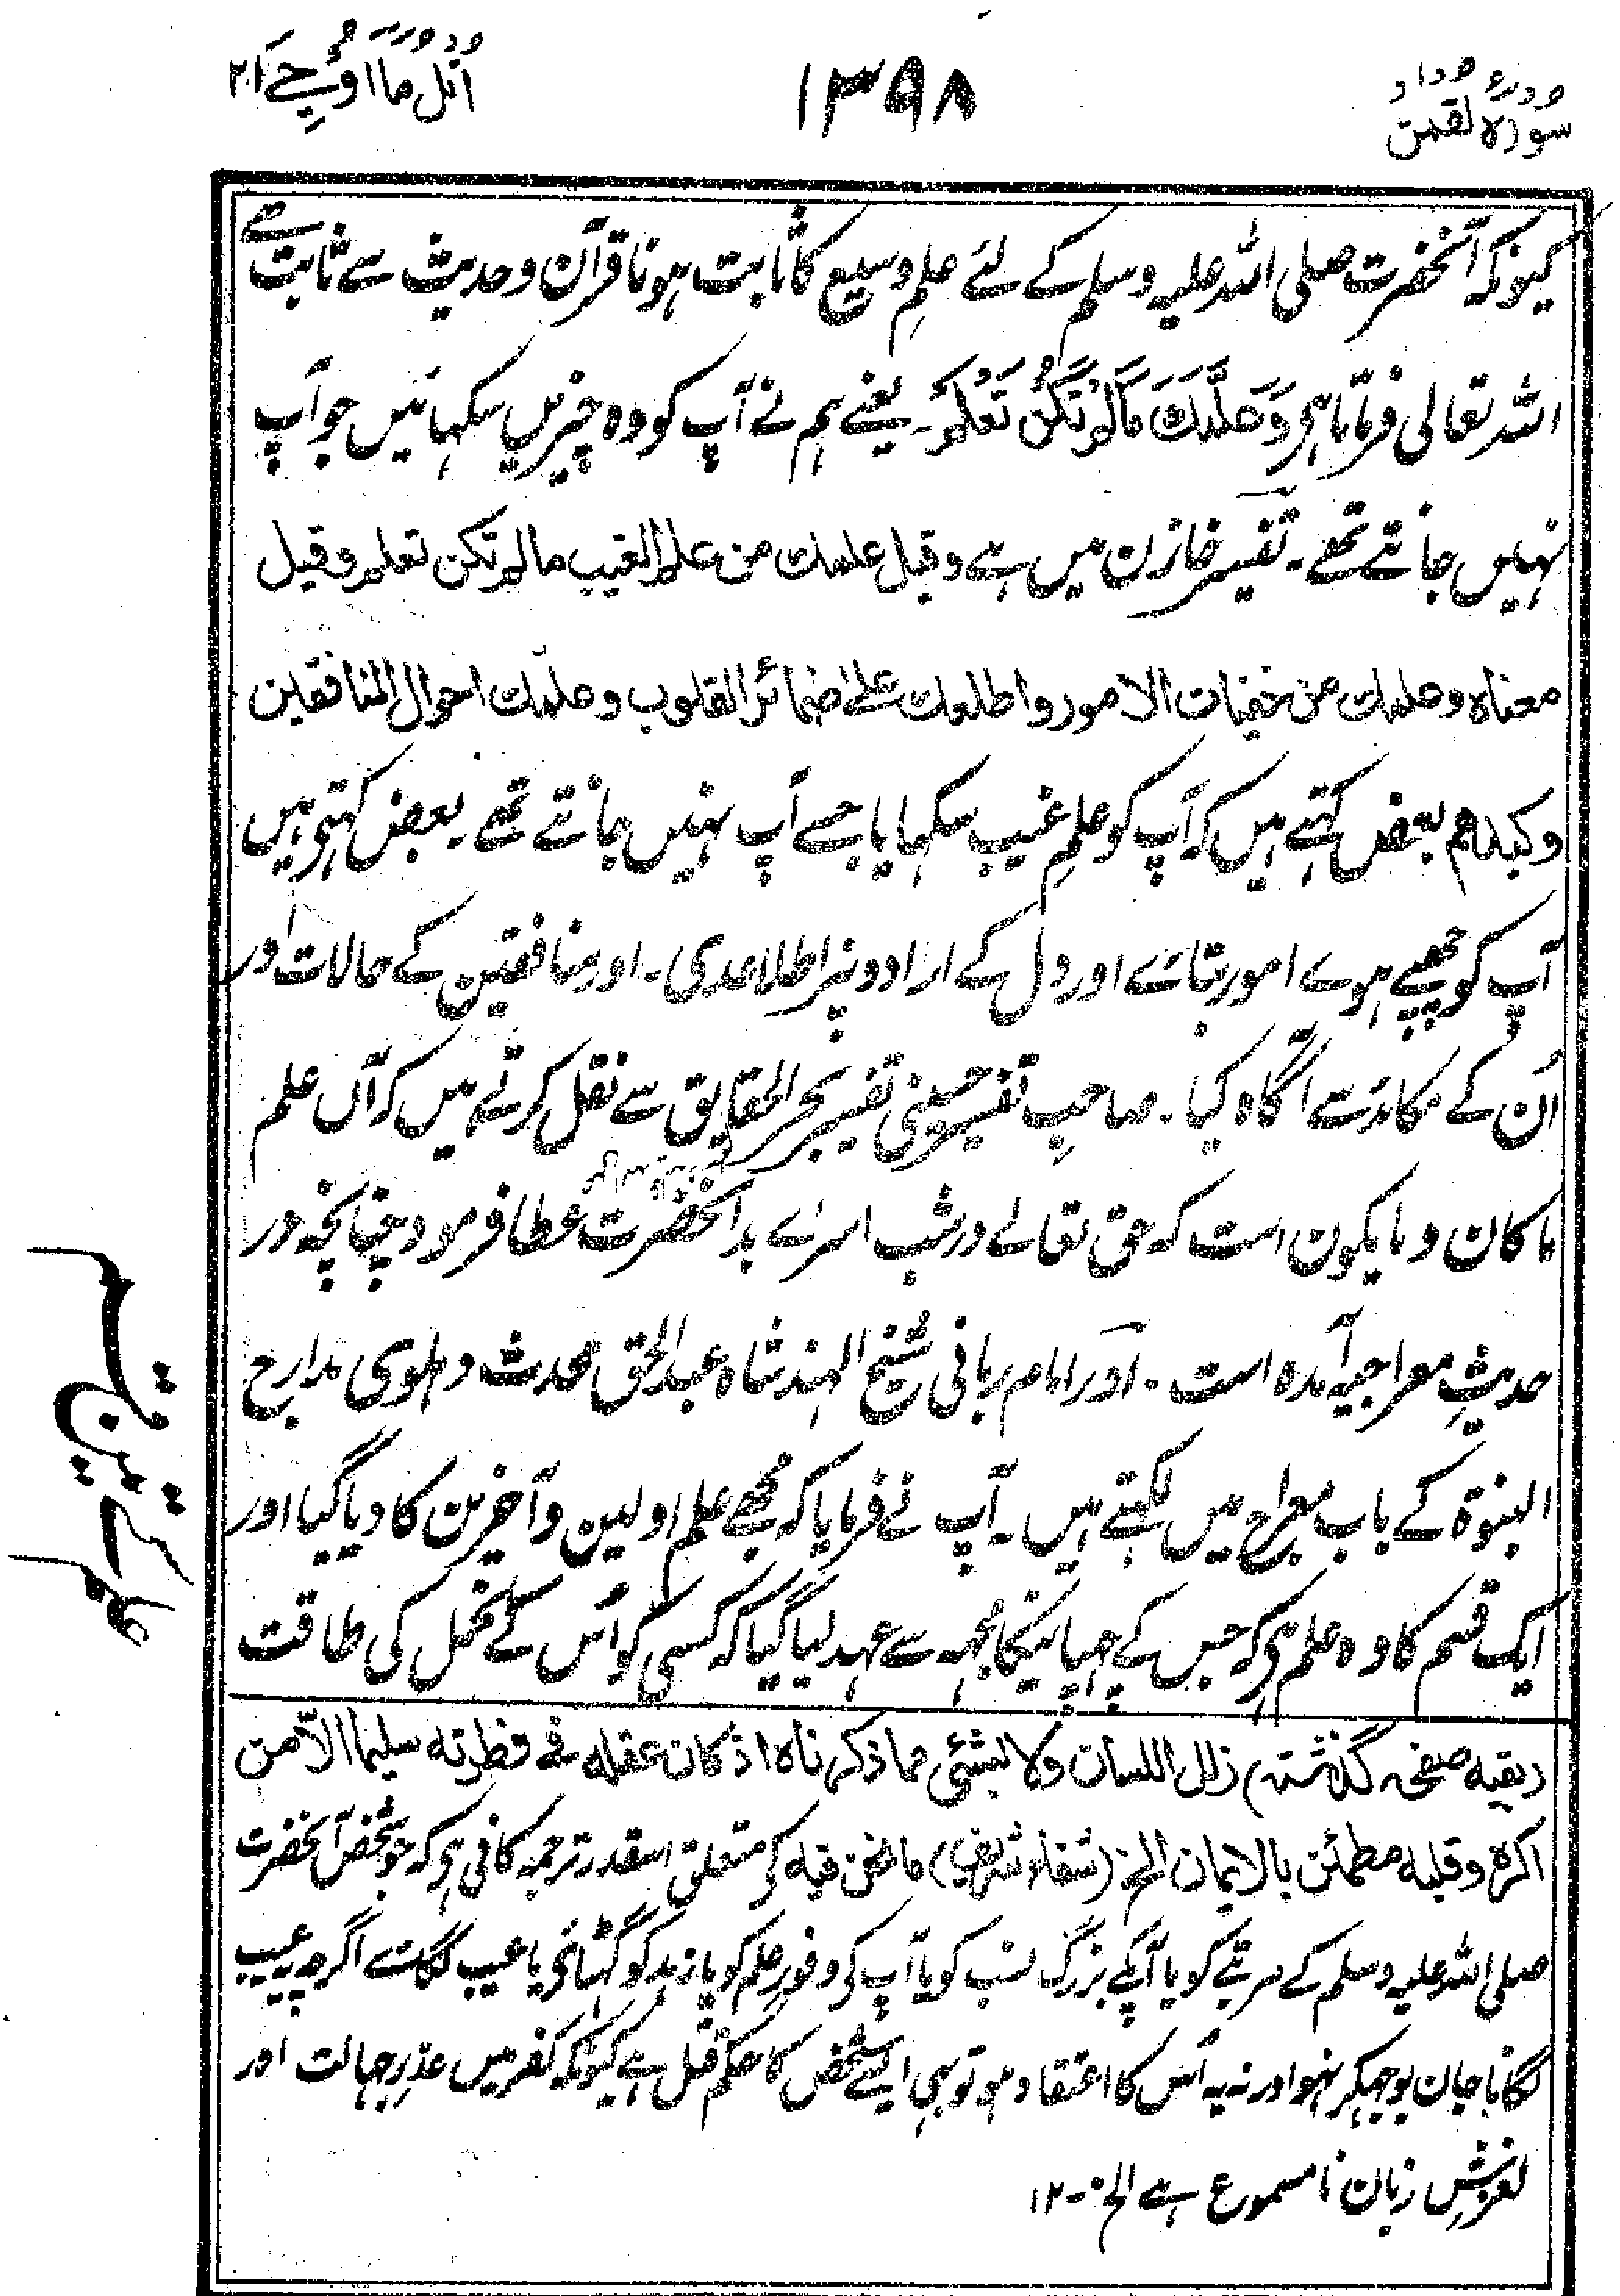 سُورَةُ لُقمٰن
۱۳۹۸
اُتْلُ مَا اُوْحِيَ ۲۱
کیونکہ آنحضرت صلی اللہ علیہ وسلم کے لئے علمِ وسیع کا ثابت ہونا قرآن وحدیث سے ثابت ہے
اللہ تعالی فرماتا ہی وَعَلَّمَكَ مَا لَمْ تَكُنْ تَعْلَمُ۔ یعنے ہم نے آپ کو وہ چیزیں سکہائیں جو آپ
نہیں جانتے تھے۔ تفسیر خازن میں ہے وقيل علمك من علم الغيب مالم تكن تعلم وقيل
معناه وعلمك من خفيات الامور واطلعك على ضمائر القلوب وعلمك احوال المنافقين
وكيدهم بعض کہتے ہیں کہ آپ کو علمِ غیب سکہایا جسے آپ نہیں جانتے تھے۔ بعض کہتی ہیں
آپ کو چھپے ہوے امور بتائے اور دل کے ارادوںپر اطلاعدی۔ اور منافقین کے حالات اور
اُن کے مکائد سے آگاہ کیا۔ صاحبِ تفسیر حسینی تفسیر بحر الحقایق سے نقل کرتے ہیں کہ آں علم
ما کان وما یکون است کہ حق تعالے در شب اسرے بدانحضرت عطا فرمود چنانچہ در
حدیثِ معراجیہ آمدہ است۔ اور امام ربانی شیخ الہند شاہ عبد الحق محدث دہلوی مدارج
النبوۃ کے باب معراج میں لکہتے ہیں۔ آپ نے فرمایا کہ مجھے علم اولین و آخرین کا دیا گیا اور
ایک قسم کا وہ علم ہی کہ جس کے چہپانیکا مجہہ سے عہد لیا گیا کہ کسی کو اُس کے تحمل کی طاقت
(بقیہ صفحہ گذشتہ) زلل اللسان ولا بشئی مما ذكرناه اذ كان عقله في فطرته سليما الا من
اكره وقلبه مطمئن بالايمان الخ (شفاء شریف) ما نحن فیہ کی متعلق اسقدر ترجمہ کافی ہی کہ جو شخص آنحضرت
صلی اللہ علیہ وسلم کے مرتبے کو یا آپکے بزرگ نسب کو یا آپ کی وفور علم کو یا زہد کو گہٹائی یا عیب لگائے اگرچہ یہ عیب
لگانا جان بوجہکر نہو اور نہ یہ اُس کا اعتقاد ہو تو بہی ایسے شخص کا حکم قتل ہے کیونکہ کفر میں عذرِ جہالت اور
لغزشِ زبان نا مسموع ہے الخ۔ ۱۲